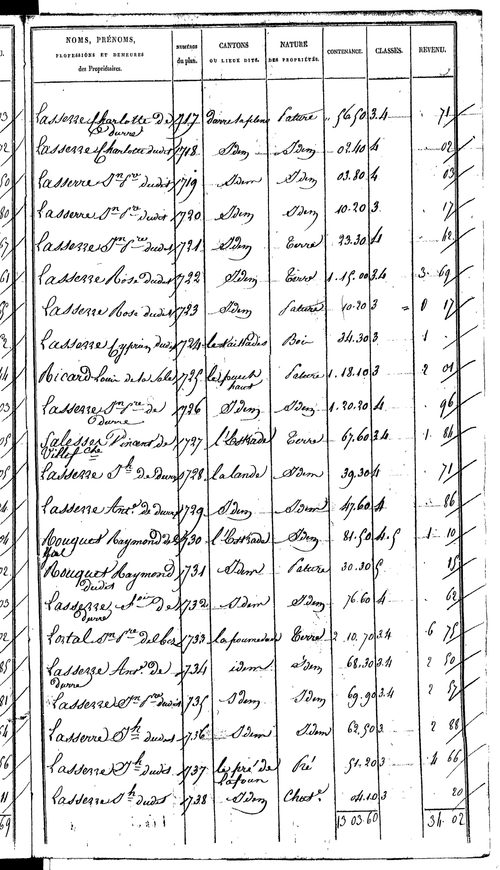 NOMS, PRÉNOMS, PROFESSIONS ET DEMEURES des Propriétaires. NUMÉROS du plan. CANTONS OU LIEUX DITS. NATURE DES PROPRIÉTÉS. CONTENANCE. CLASSES. REVENU.
Lasserre Charlotte de 1717 Pature 56.50 3.4 71
Durre
Lasserre Charlotte dudit 1718 Idem Idem 02.40 4 02
Lasserre Jn Pre dudit 1719 Idem Idem 03.80 4 03
Lasserre Jn Pre dudit 1720 Idem Idem 10.20 3 17
Lasserre Jn Pre dudit 1721 Idem Terre 23.30 4 62
Lasserre Rose dudit 1722 Idem Terre 1.15.00 3.4 3 69
Lasserre Rose dudit 1723 Idem Pature 10.20 3 0 17
Lasserre Cyprien dudit 1724 Bois 24.30 3 1
Ricard Louis de la Sale 1725 le puech Pature 1.18.10 3 2 01
haut
Lasserre Jn Pre de 1726 Idem Idem 1.20.20 4 96
Durre
Salesses Vincent de 1727 l'Estrade Terre 67.60 3.4 1 84
Villefche
Lasserre Jh de Durre 1728 la lande Idem 39.30 4 71
Lasserre Ante de Durre 1729 Idem Idem 47.60 4 86
Rouquet Raymond del 1730 l'Estrade Idem 81.50 4.5 1 10
Rouquet Raymond 1731 Idem Pature 30.30 5 15
dudit
Lasserre de 1732 Idem Idem 76.60 4 62
Durre
Lortal Jn Pre del 1733 Terre 2 10.70 3.4 6 75
Lasserre Ante de 1734 idem Idem 68.30 3.4 2 50
Durre
Lasserre Jn Pre dudit 1735 Idem Idem 69.90 3.4 2 57
Lasserre Jh dudit 1736 Idem Idem 62.50 3 2 88
Lasserre Jh dudit 1737 le pré de Pré 51.20 3 4 66
Lasserre Jh dudit 1738 Idem 04.10 3 20
13 03 60 34.02